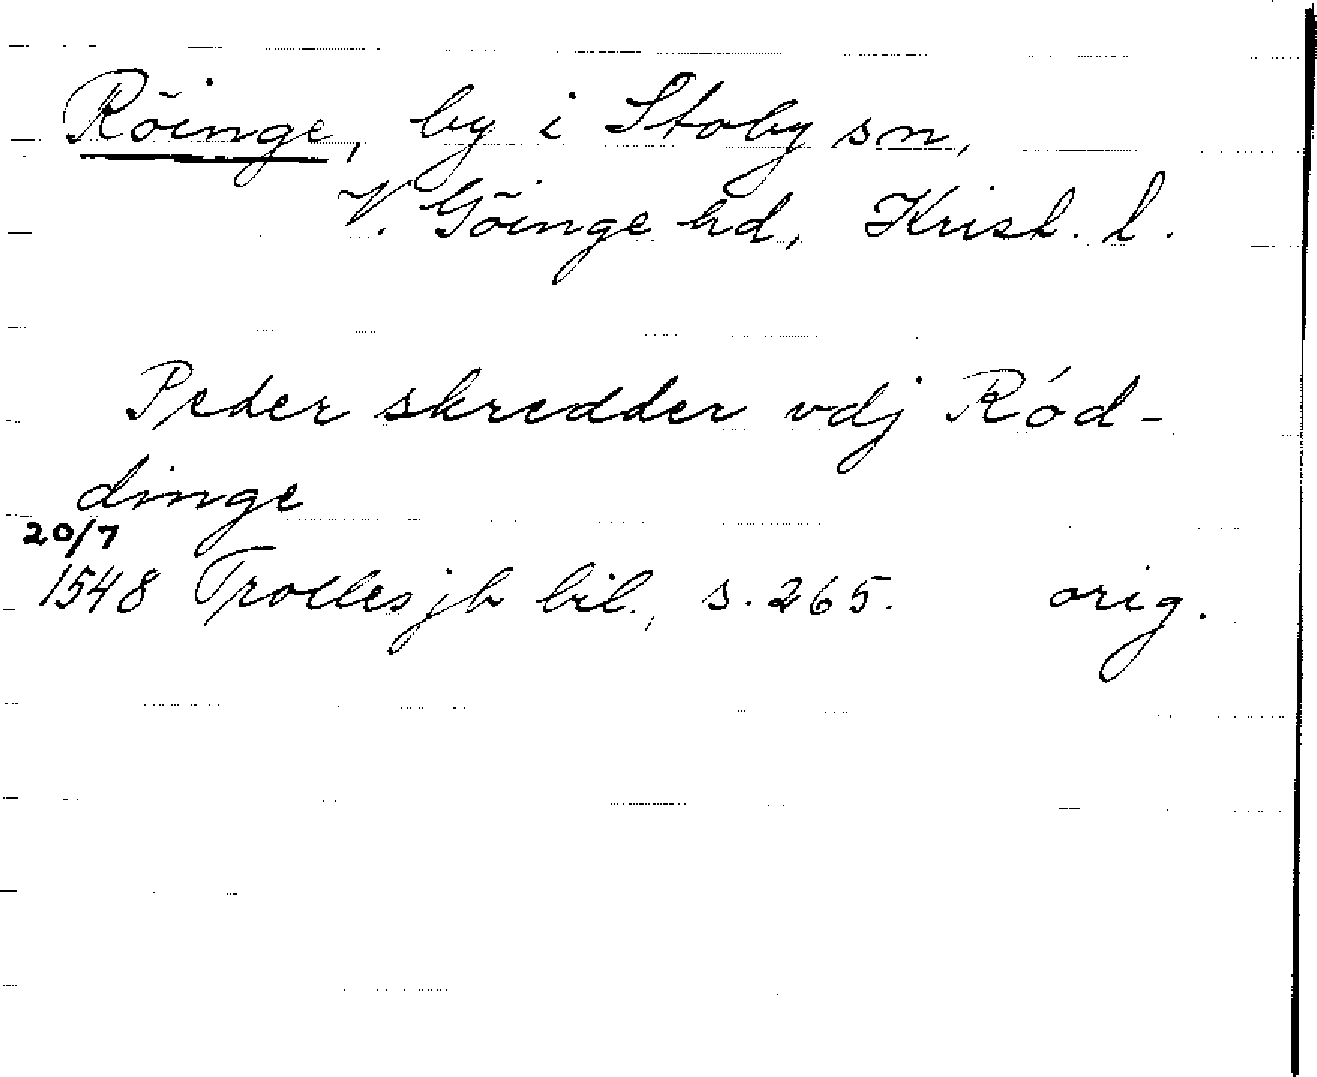 Röinge, by i Stoby sn,
V. Göinge hd, Krist. l.
Peder skredder vdj Ród-
dinge
20/7
1548 Trolles jb bil., s. 265. orig.